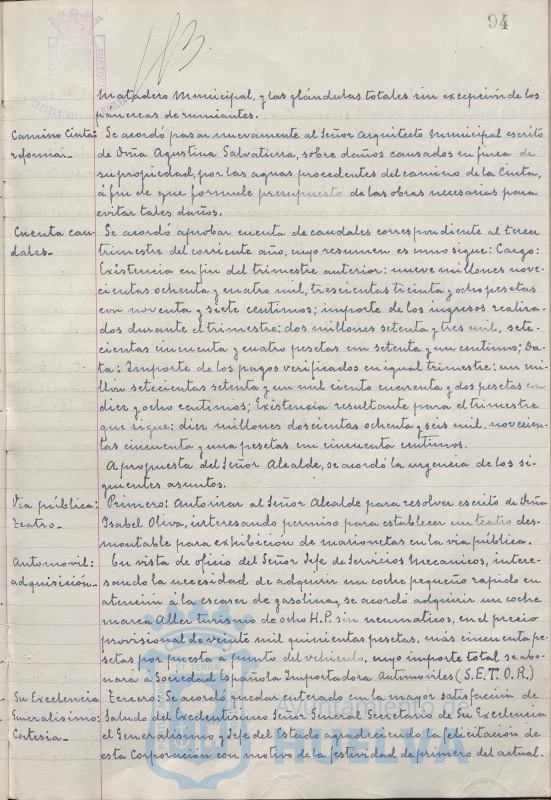 94
183
matadero Municipal, y las glándulas totales sin excepción de los
páncreas de rumiantes.
Camino Cinta: Se acordó pasar nuevamente al Señor Arquitecto Municipal escrito
reforma.- de Doña Agustina Salvatierra, sobre daños causados en finca de
su propiedad, por las aguas procedentes del camino de la Cinta,
á fin de que formule presupuesto de las obras necesarias para
evitar tales daños.
Cuenta cau- Se acordó aprobar cuenta de caudales correspondiente al tercer
dales- trimestre del corriente año, cuyo resumen es como sigue: Cargo:
Existencia en fin del trimestre anterior: nueve millones nove-
cientas ochenta y cuatro mil, trescientas treinta y ocho pesetas
con noventa y siete centimos; importe de los ingresos realiza-
dos durante el trimestre: dos millones setenta y tres mil, sete-
cientas cincuenta y cuatro pesetas con setenta y un centimo; Da-
ta: Importe de los pagos verificados en igual trimestre: un mi-
llón setecientas setenta y un mil ciento cuarenta y dos pesetas con
diez y ocho centimos; Existencia resultante para el trimestre
que sigue: diez millones doscientas ochenta y seis mil novecien-
tas cincuenta y una pesetas con cincuenta centimos.
A propuesta del Señor Alcalde, se acordó la urgencia de los si-
guientes asuntos.
Via pública: Primero: Autorizar al Señor Alcalde para resolver escrito de Doña
teatro- Isabel Oliva, interesando permiso para establecer un teatro des-
montable para exhibición de marionetas en la via pública.
Automovil: En vista de oficio del Señor Jefe de Servicios Mecanicos, intere-
adquisición- sando la necesidad de adquirir un coche pequeño rapido en
atención á la escasez de gasolina, se acordó adquirir un coche
marca Adler turismo de ocho H.P. sin neumaticos, en el precio
provisional de veinte mil quinientas pesetas, más cincuenta pe-
setas por puesta a punto del vehiculo, cuyo importe total se abo-
nará a Sociedad Española Importadora Automoviles (S.E.T.O.R.)
Su Excelencia Tercero: Se acordó quedar enterado con la mayor satisfacción de
Generalisimo: Saluda del Excelentisimo Señor General Secretario de Su Excelencia
Cortesia- el Generalisimo y Jefe del Estado agradeciendo la felicitación de
esta Corporación con motivo de la festividad de primero del actual.
Ayuntamiento de
HUELVA